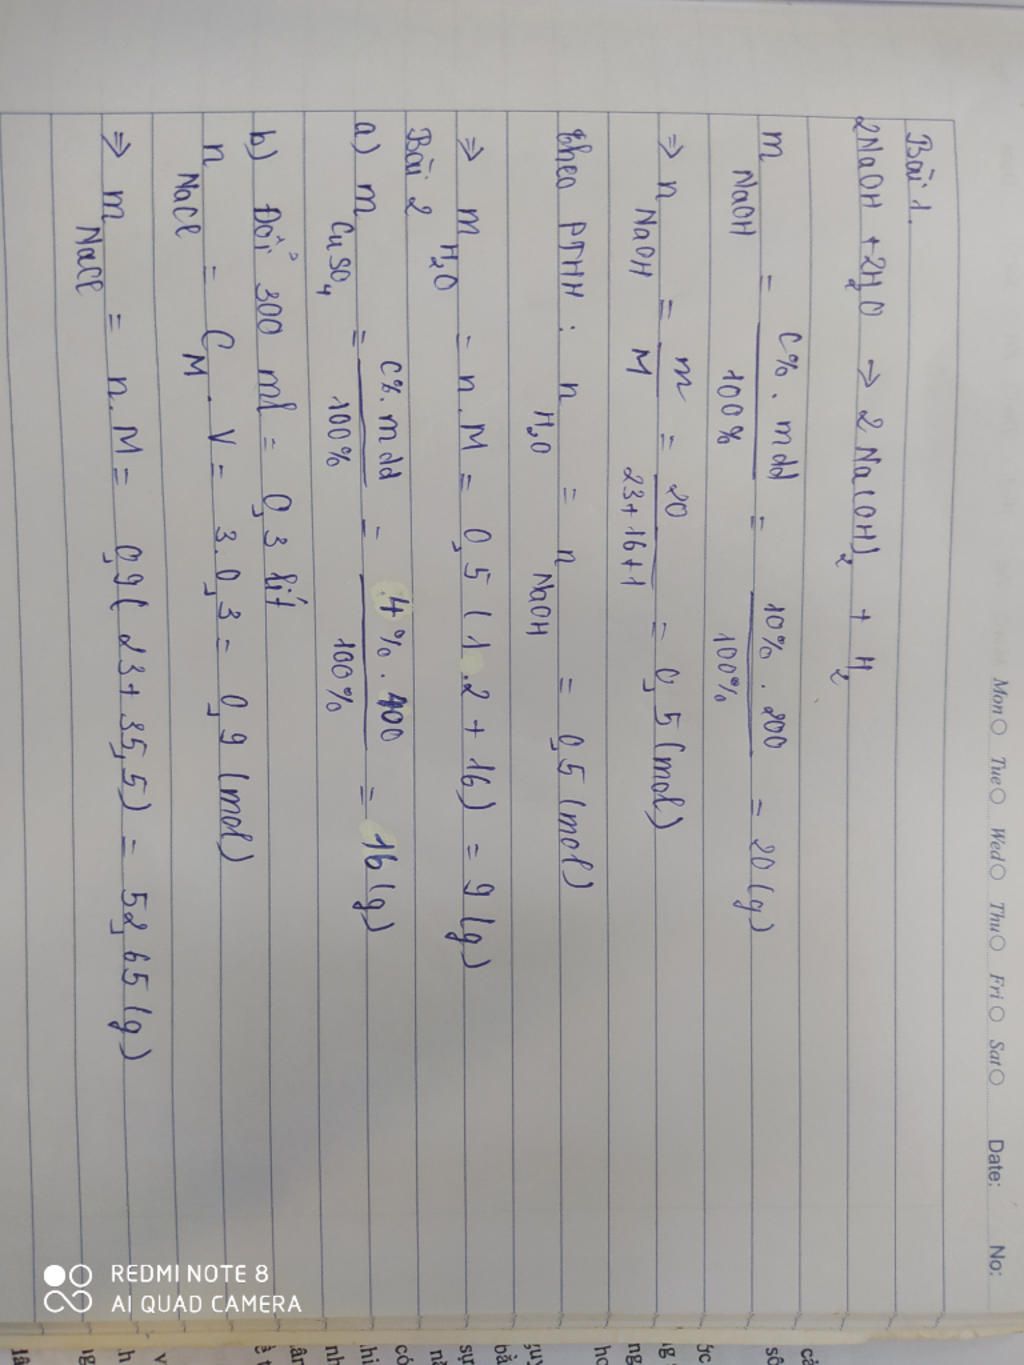 Mon Tue Wed Thu Fri Sat Date: No:
Bài 1.
2NaOH + 2H2O → 2Na(OH)2 + H2
mNaOH = C%.mdd / 100% = 10%.200 / 100% = 20 (g)
⇒ nNaOH = m / M = 20 / 23+16+1 = 0,5 (mol)
theo PTHH: nH2O = nNaOH = 0,5 (mol)
⇒ mH2O = n.M = 0,5 (1.2 + 16) = 9 (g)
Bài 2
a) mCuSO4 = C%.mdd / 100% = 4%.400 / 100% = 16 (g)
b) Đổi 300 ml = 0,3 lít
nNaCl = CM.V = 3.0,3 = 0,9 (mol)
⇒ mNaCl = n.M = 0,9 (23 + 35,5) = 52,65 (g)
REDMI NOTE 8
AI QUAD CAMERA